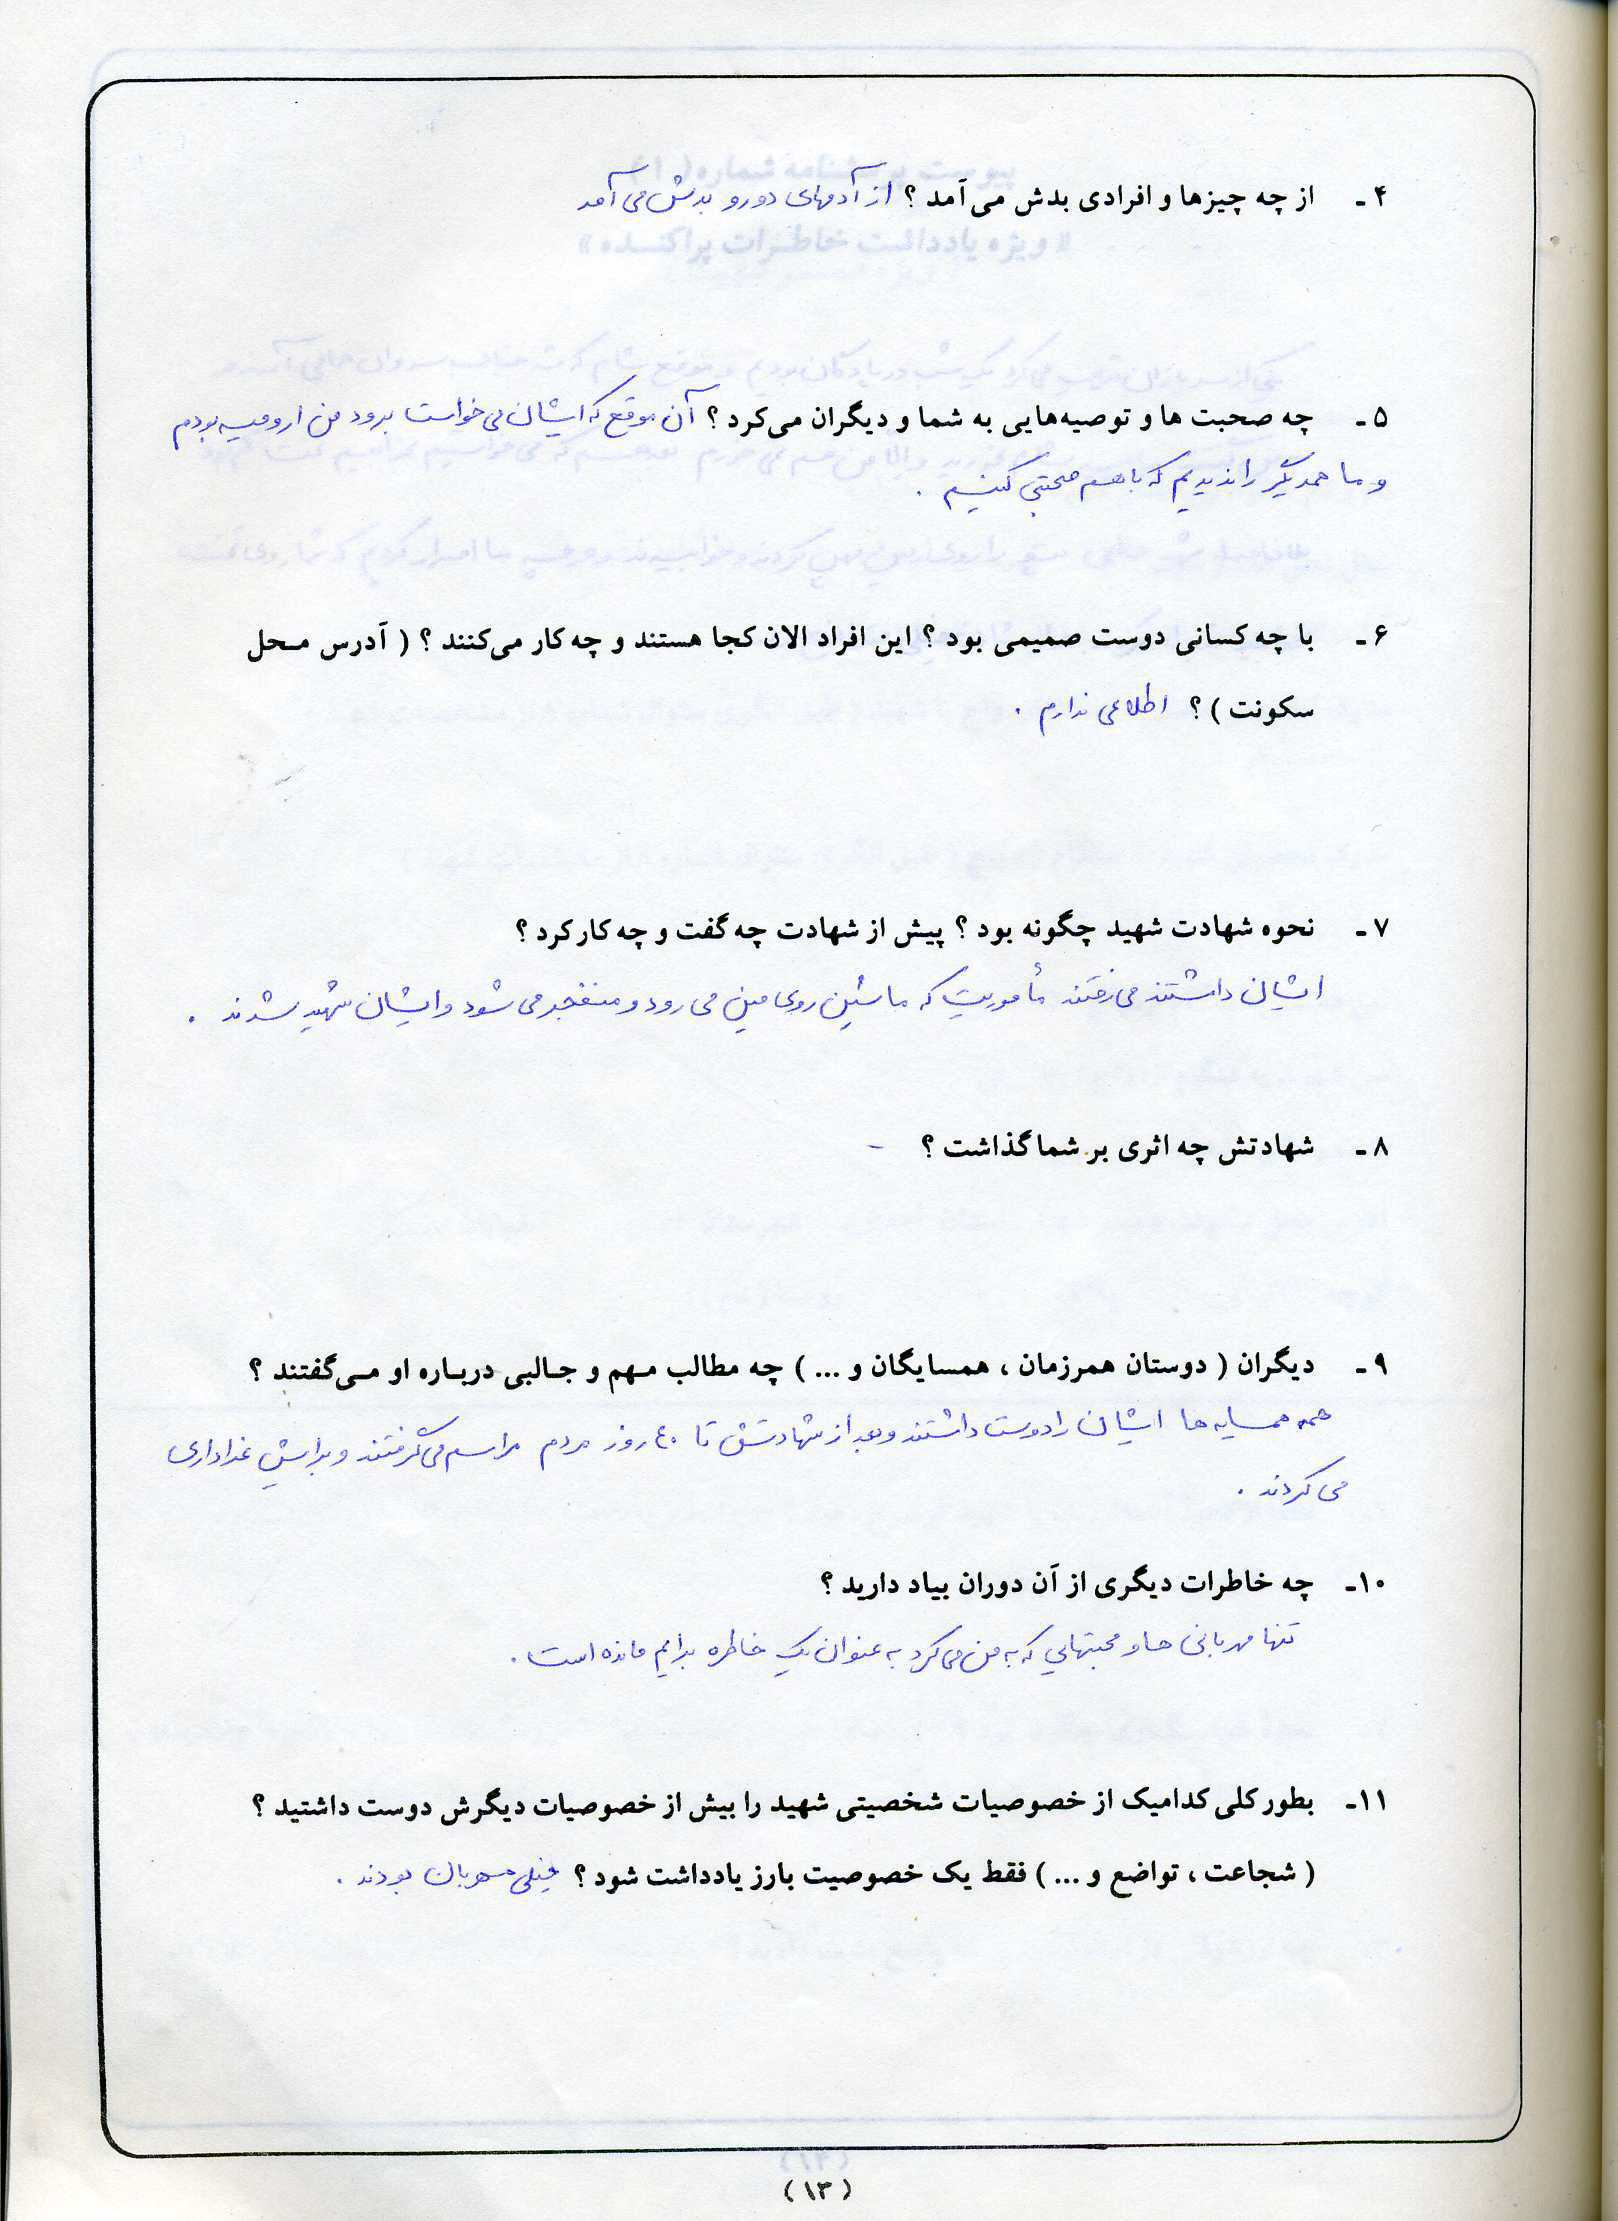 ۴ـ از چه چیزها و افرادی بدش می‌آمد ؟ از آدمهای دورو بدش می آمد
۵ـ چه صحبت ها و توصیه‌هایی به شما و دیگران می‌کرد ؟ آن موقع که ایشان می خواست برود من ارومیه بودم
و ما همدیگر را ندیدیم که با هم صحبتی کنیم .
۶ـ با چه کسانی دوست صمیمی بود ؟ این افراد الان کجا هستند و چه کار می‌کنند ؟ ( آدرس محل
سکونت ) ؟ اطلاعی ندارم .
۷ـ نحوه شهادت شهید چگونه بود ؟ پیش از شهادت چه گفت و چه کار کرد ؟
ایشان داشتند می رفتند مأموریت که ماشین روی مین می رود و منفجر می شود و ایشان شهید شدند .
۸ـ شهادتش چه اثری بر شما گذاشت ؟ -
۹ـ دیگران ( دوستان همرزمان ، همسایگان و ... ) چه مطالب مهم و جالبی درباره او می‌گفتند ؟
همه همسایه ها ایشان را دوست داشتند و بعد از شهادتش تا ۴۰ روز مردم مراسم می گرفتند و برایش عزاداری
می کردند .
۱۰ـ چه خاطرات دیگری از آن دوران بیاد دارید ؟
تنها مهربانی ها و محبتهایی که به من می کرد به عنوان یک خاطره برایم مانده است .
۱۱ـ بطور کلی کدامیک از خصوصیات شخصیتی شهید را بیش از خصوصیات دیگرش دوست داشتید ؟
( شجاعت ، تواضع و ... ) فقط یک خصوصیت بارز یادداشت شود ؟ خیلی مهربان بودند .
(۱۳)